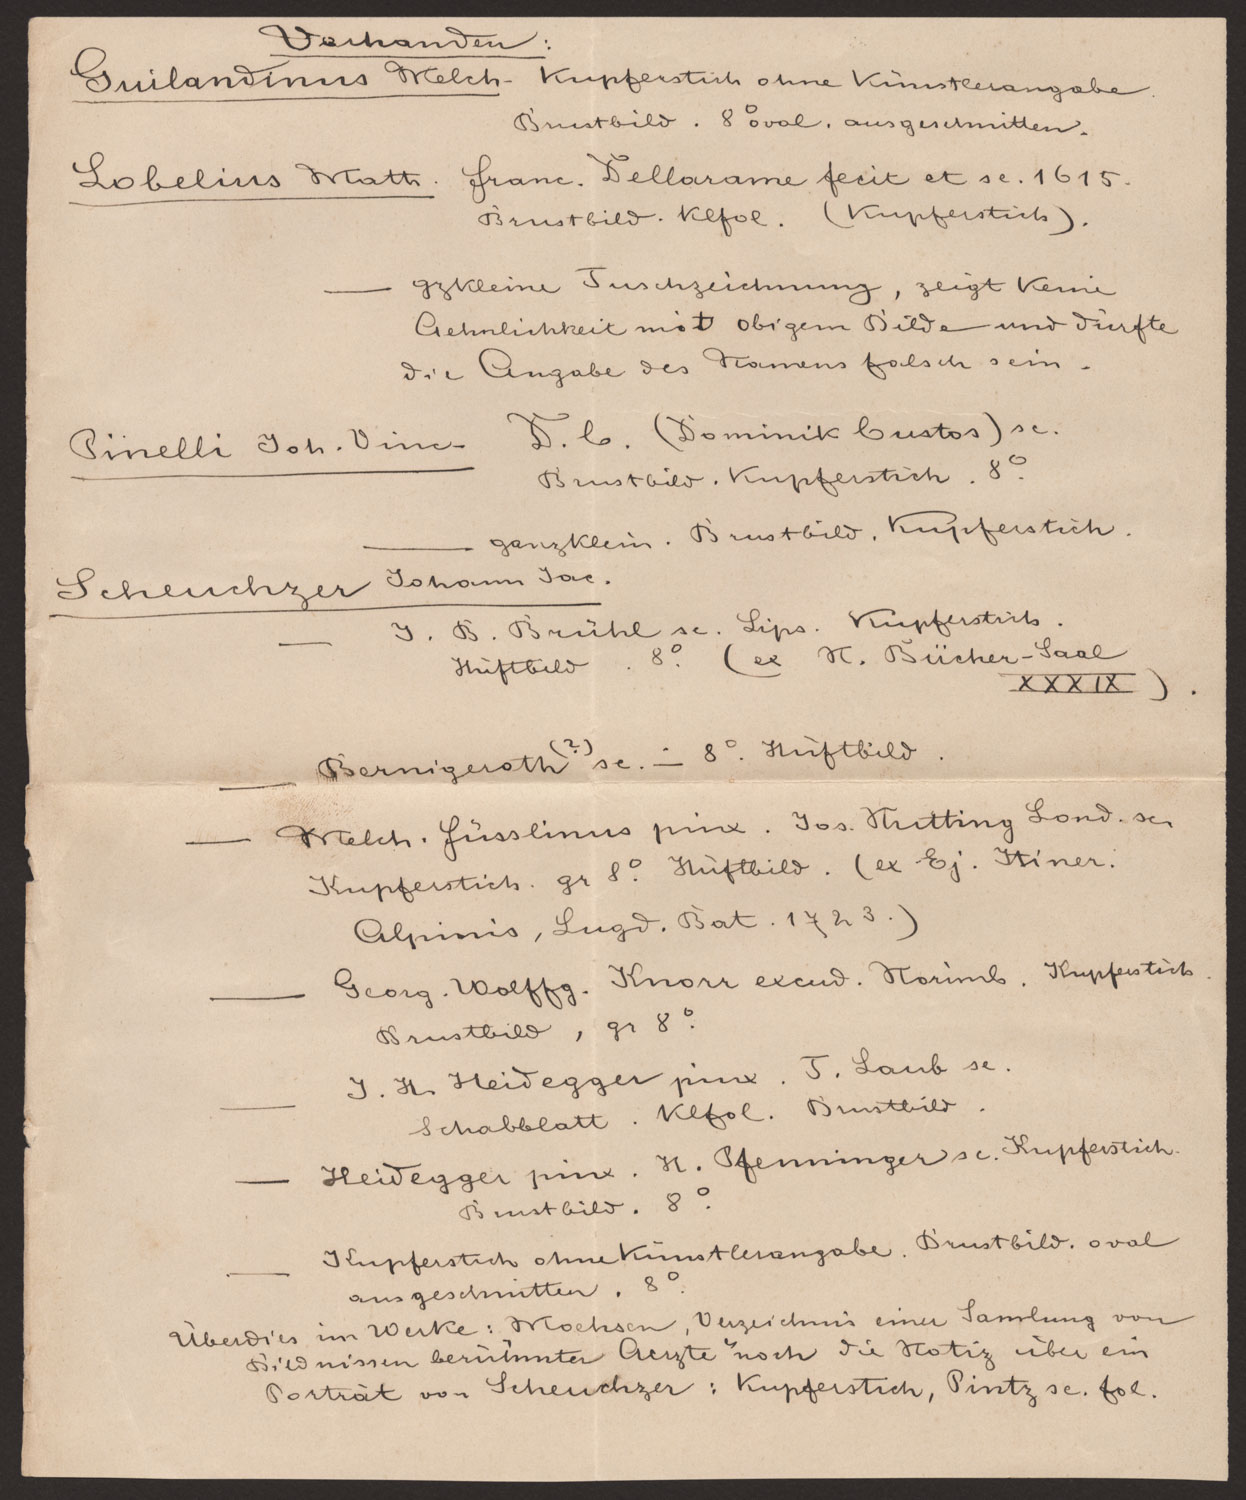 Vorhanden:
Guilandinus Melch. Kupferstich ohne Künstlerangabe.
Brustbild. 8° oval. ausgeschnitten.
Lobelius Math. franc. Dellarame fecit et sc. 1615.
Brustbild. Klfol. (Kupferstich).
— gzkleine Tuschzeichnung, zeigt keine
Aehnlichkeit mit obigem Bilde und dürfte
die Angabe des Namens falsch sein.
Pinelli Joh. Vinc. D. C. (Dominik Custos) sc.
Brustbild. Kupferstich. 8°.
— ganzklein. Brustbild. Kupferstich.
Scheuchzer Johann Jac.
— J. B. Brühl sc. Lips. Kupferstich.
Hüftbild. 8°. (ex N. Bücher-Saal
XXXIX).
— Bernigeroth (?) sc. — 8°. Hüftbild.
— Melch. Füsslinus pinx. Jos. Nutting Lond. sc.
Kupferstich. gr 8°. Hüftbild. (ex Ej. Itiner.
Alpinis, Lugd. Bat. 1723.)
— Georg. Wolffg. Knorr excud. Norimb. Kupferstich.
Brustbild, gr 8°.
— J. H. Heidegger pinx. T. Laub sc.
Schabblatt. Klfol. Brustbild.
— Heidegger pinx. H. Pfenninger sc. Kupferstich.
Brustbild. 8°.
— Kupferstich ohne Künstlerangabe. Brustbild. oval
ausgeschnitten. 8°.
Überdies im Werke: Moehsen, Verzeichnis einer Samlung von
Bildnissen berühmter Aerzte" noch die Notiz über ein
Porträt von Scheuchzer: Kupferstich, Pintz sc. fol.